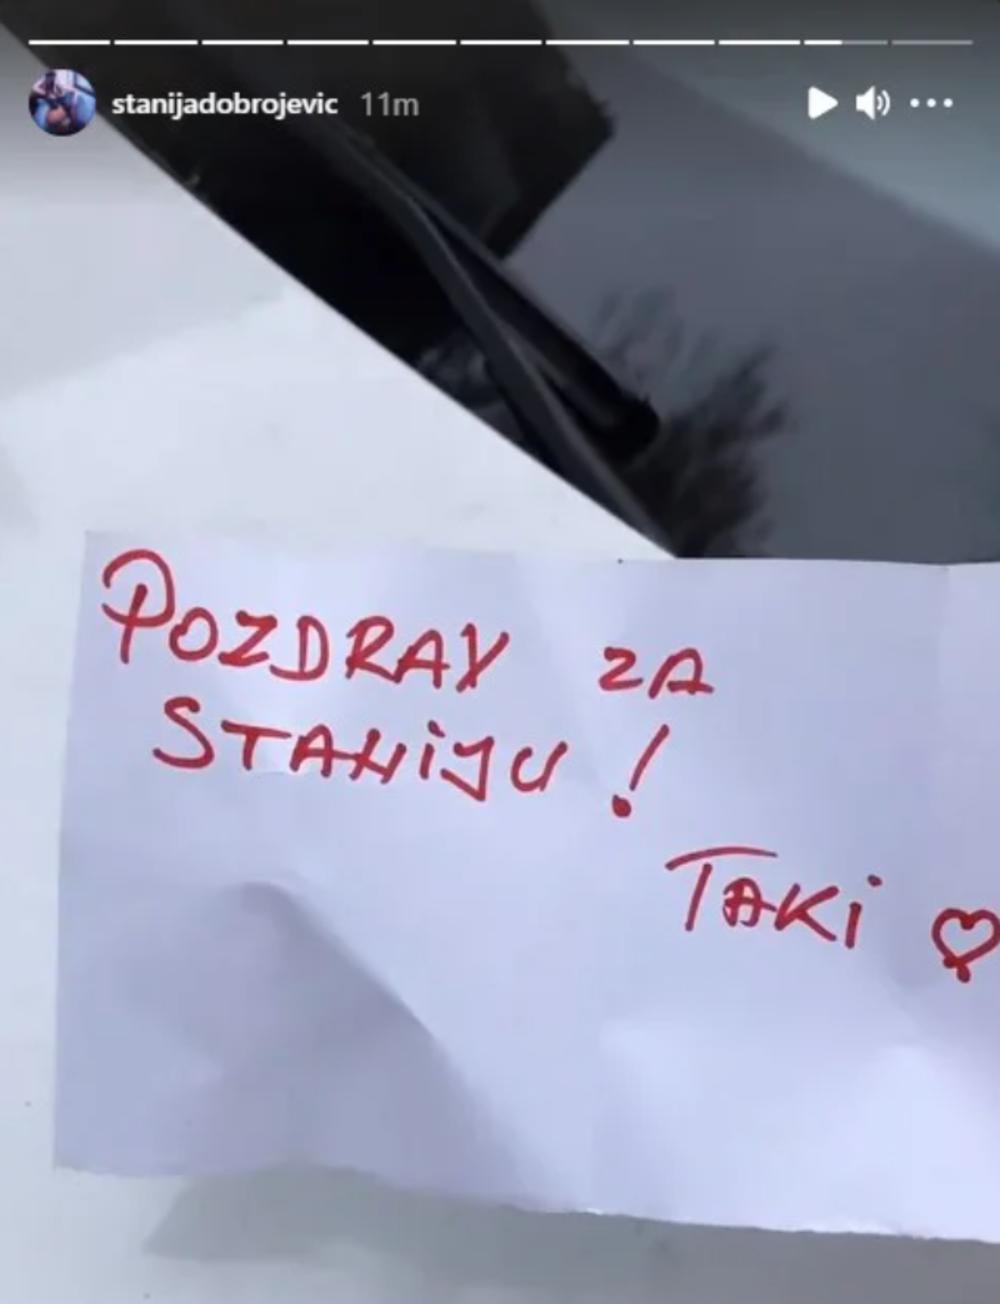 stanijadobrojevic 11m
POZDRAV ZA
STANiJU!
TAKi ♡